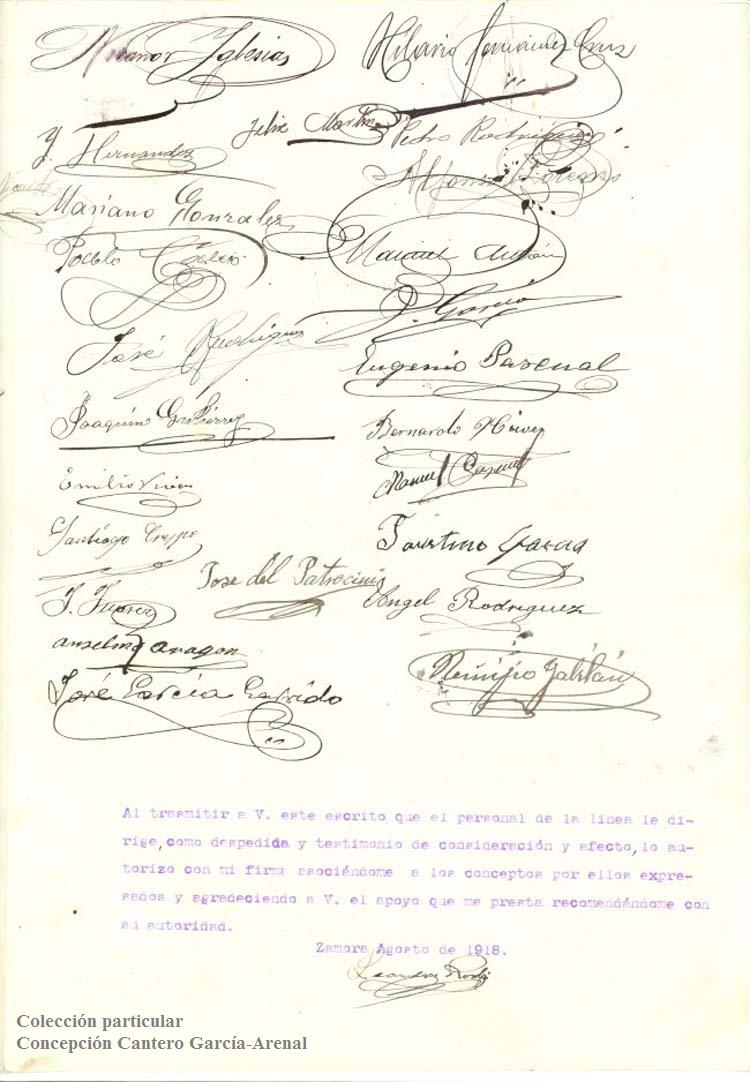 Nicanor Iglesias
Hilario Fernández Cruz
Y. Hernandez
Felix Martin
Pedro Rodriguez
Alfonso Lorenzo
Mariano Gonzales
Pablo
Manuel
P. García
José Rodriguez
Eugenio Pascual
Joaquim Gutiérrez
Bernardo
Emilio
Manuel
Santiago Crespo
Faustino Garcia
Jose del Patrocinio
J. Juarez
Angel Rodriguez
anselmo aragon
Remigio
José García Garrido
Al trasmitir a V. este escrito que el personal de la línea le di-
rige, como despedida y testimonio de consideración y afecto, lo au-
torizo con mi firma asociándome a los conceptos por ellos expre-
sados y agradeciendo a V. el apoyo que me presta recomendándome con
su autoridad.
Zamora Agosto de 1918.
Colección particular
Concepción Cantero García-Arenal